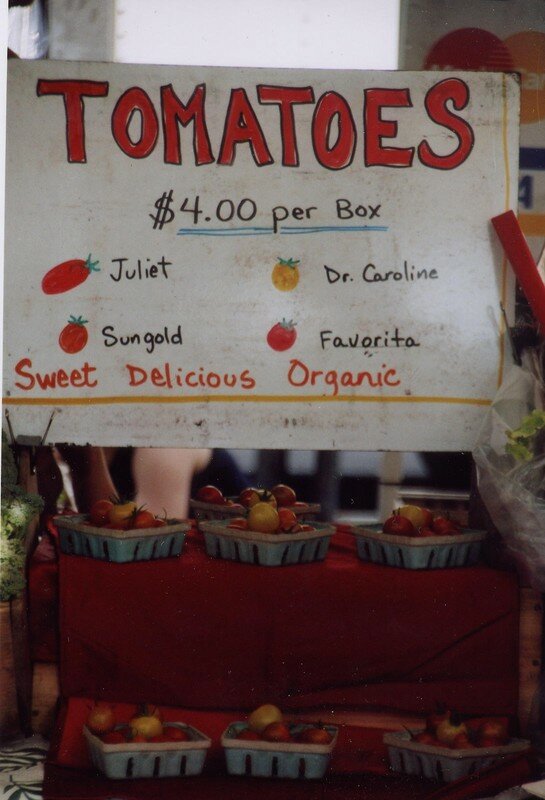 TOMATOES
$4.00 per Box
Juliet Dr. Caroline
Sungold Favorita
Sweet Delicious Organic